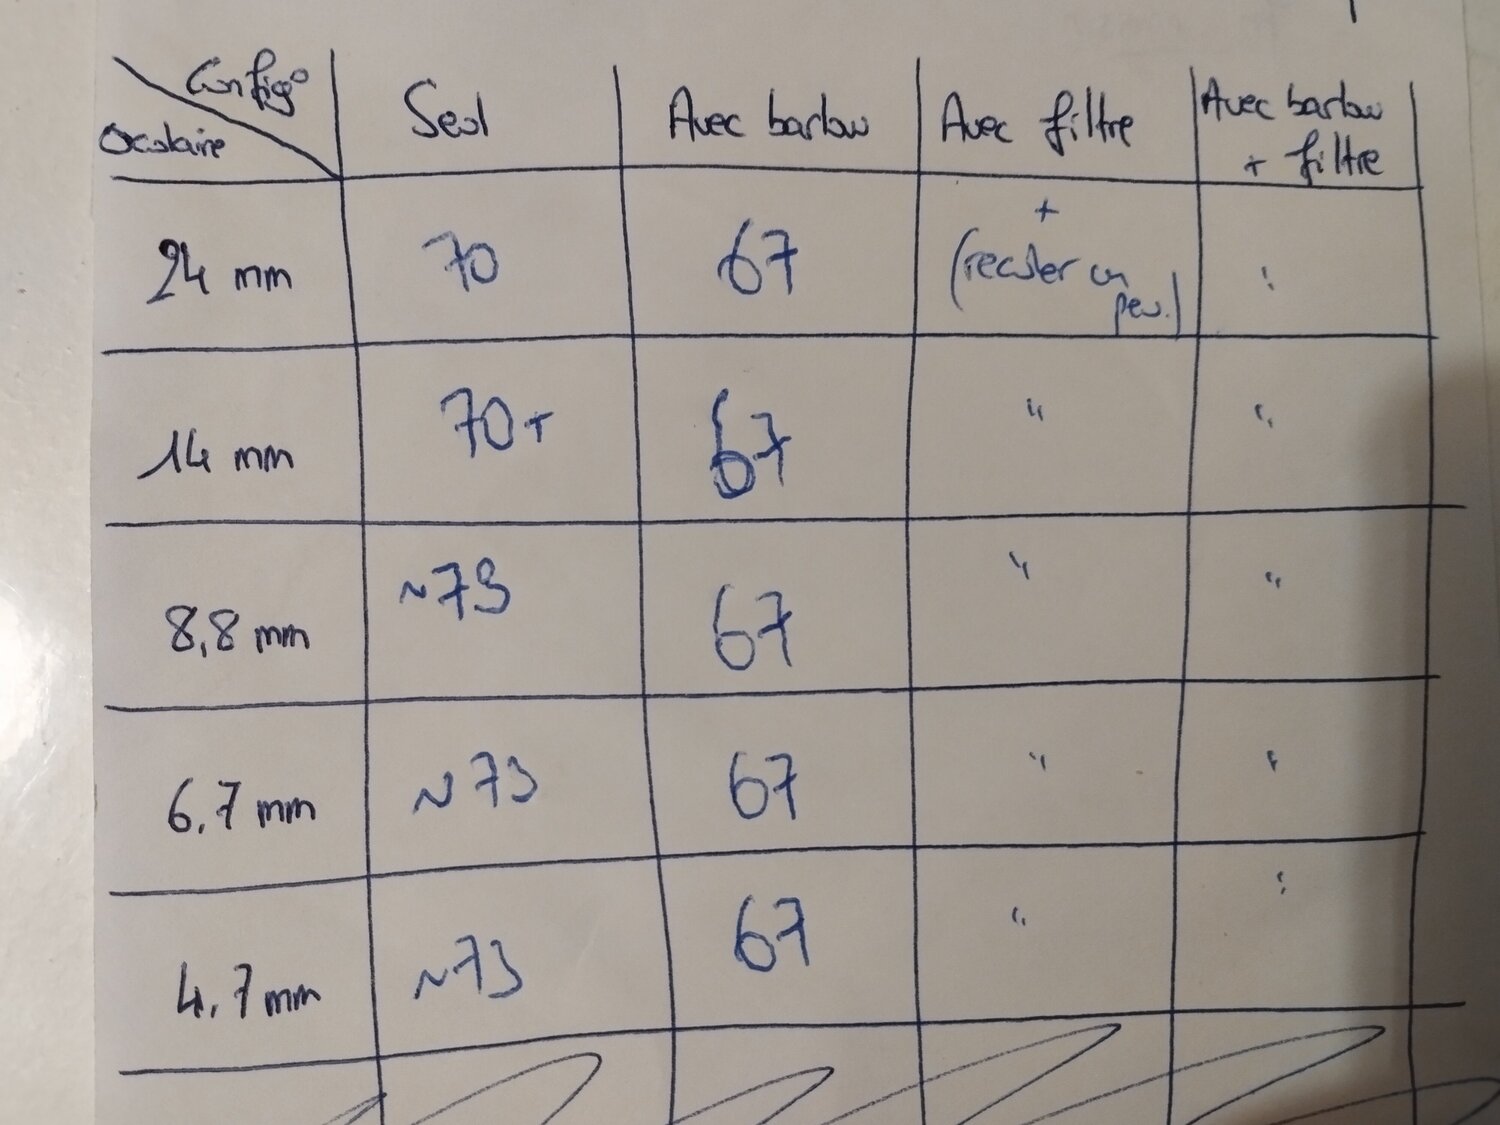 Config°
Oculaire
Seul
Avec barlow
Avec filtre
Avec barlow
+ filtre
24 mm
70
67
+
(reculer un
peu.)
"
14 mm
70+
67
"
"
8,8 mm
~73
67
"
"
6,7 mm
~73
67
"
"
4,7 mm
~73
67
"
"